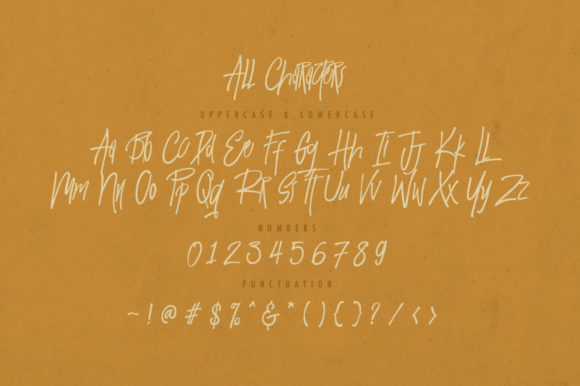 All Characters
OPPERCASE & LOWERCASE
Aa Bb Cc Dd Ee Ff Gg Hh Ii Jj Kk Ll
Mm Nn Oo Pp Qq Rr Ss Tt Uu Vv Ww Xx Yy Zz
NUMBERS
0123456789
PUNCTUATION
~!@#$%^&*(){}?/<>